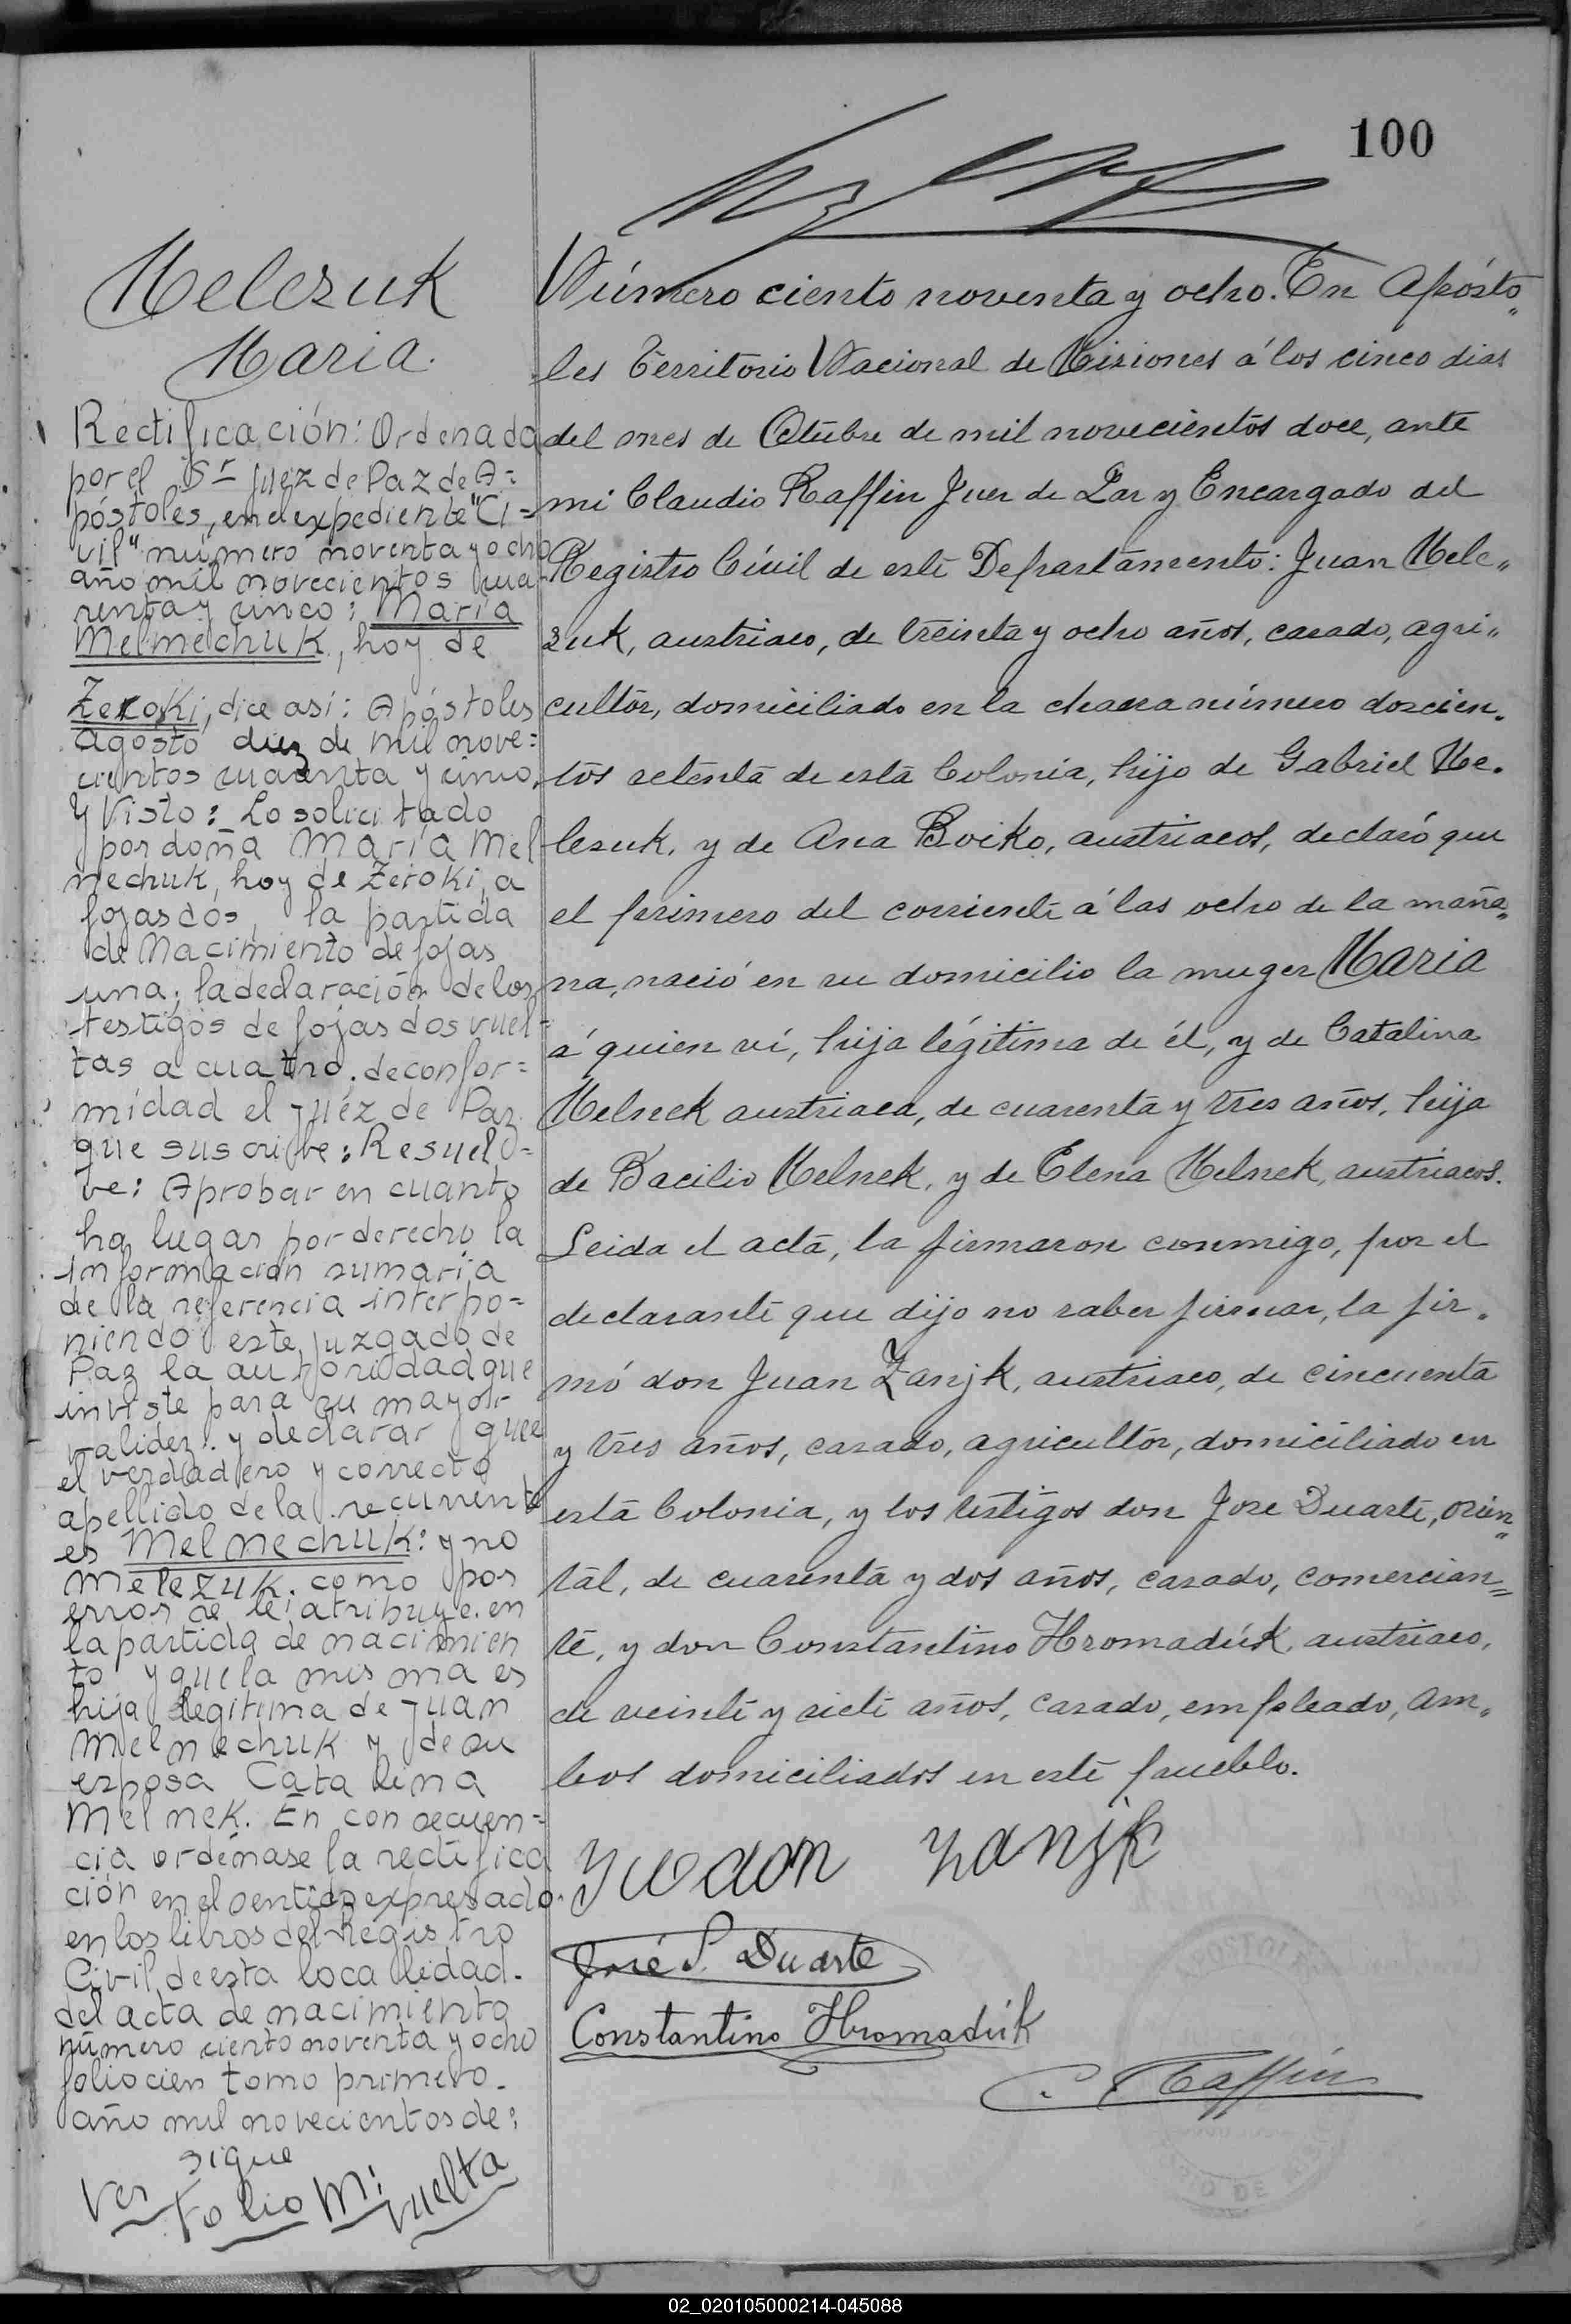 100
Melezuk
Maria.
Rectificación: Ordenada
por el Sr Juez de Paz de A=
póstoles, en el expediente "Ci=
vil" número noventa y ocho
año mil novecientos cua-
renta y cinco: María
Melmechuk, hoy de
Zeroki, dice así: Apóstoles
agosto diez de mil nove=
cientos cuarenta y cinco.
Y Visto: Lo solicitado
por doña María Mel
nechuk, hoy de Zeroki, a
fojas dos, la partida
de Nacimiento de fojas
una; la declaración de los
testigos de fojas dos vuel-
tas a cuatro. de confor=
midad el Juez de Paz
que suscribe: Resuel=
ve: Aprobar en cuanto
ha lugar por derecho la
información sumaria
de la referencia interpo=
niendo este juzgado de
Paz la autoridad que
inviste para su mayor
validez. y declarar que
el verdadero y correcto
apellido de la recurrente
es Melnechuk: y no
Melezuk. como por
error se le atribuye. en
la partida de nacimien
to y que la misma es
hija legítima de Juan
Melnechuk y de su
esposa Catalina
Melnek. En consecuen=
cia ordénase la rectifica
ción en el sentido expresado.
en los libros del Registro
Civil de esta localidad.
del acta de nacimiento
número ciento noventa y ocho
folio cien tomo primero.
año mil novecientos de:
sigue
Ver Folio M: vuelta
Número ciento noventa y ocho. En Apósto„
les Territorio Nacional de Misiones á los cinco dias
del mes de Octubre de mil novecientos doce, ante
mi Claudio Raffin Juez de Paz y Encargado del
Registro Cívil de este Departamento: Juan Mele„
zuk, austriaco, de treinta y ocho años, casado, agri„
cultor, domiciliado en la chacra número doscien„
tos setenta de esta Colonia, hijo de Gabriel Me„
lezuk, y de Ana Boiko, austriacos, declaró que
el primero del corriente á las ocho de la maña„
na, nació en su domicilio la muger Maria
á quien ví, hija légitima de él, y de Catalina
Melneck austriaca, de cuarenta y tres años, hija
de Bacilio Melnek, y de Elena Melnek, austriacos.
Leida el acta, la firmaron conmigo, por el
declarante que dijo no saber firmar, la fir„
mó don Juan Zanjk, austriaco, de cincuenta
y tres años, casado, agricultor, domiciliado en
esta Colonia, y los testigos don Jose Duarte, orien„
tal, de cuarenta y dos años, casado, comercian=
te, y don Constantino Hromadúk, austriaco,
de veinte y siete años, casado, empleado, am„
bos domiciliados en este pueblo.
Zanjk
José S. Duarte
Constantino Hromadúk
C. Raffin
02_020105000214-045088